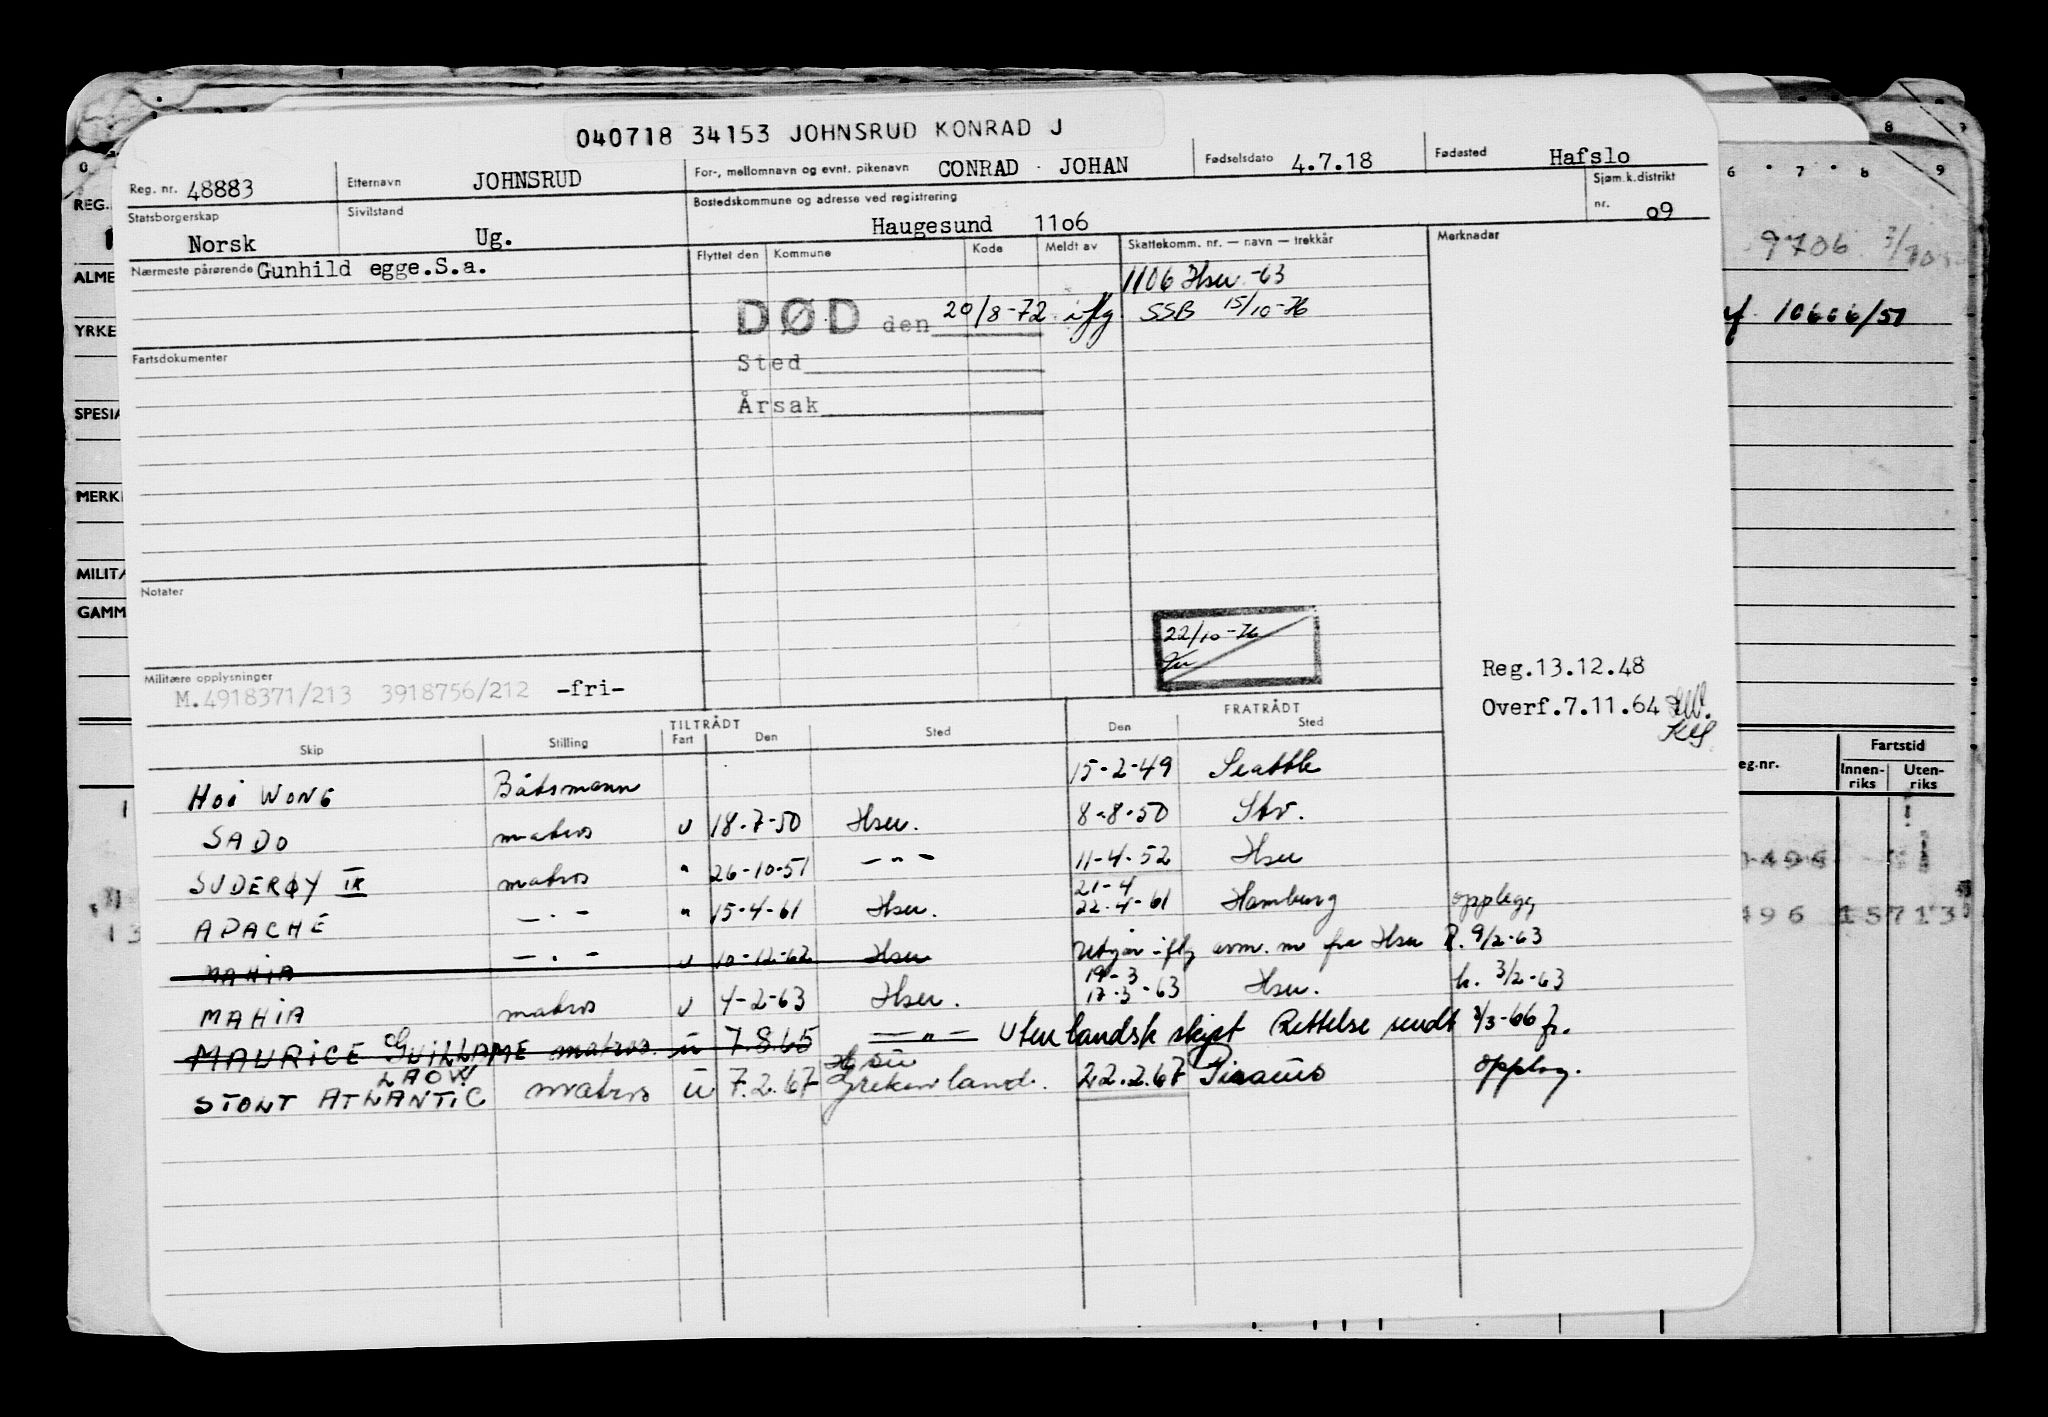 040718 34153 JOHNSRUD KONRAD J
Reg. nr. 48883 Etternavn JOHNSRUD For-, mellomnavn og evnt. pikenavn CONRAD JOHAN Fødselsdato 4.7.18 Fødested Hafslo
Statsborgerskap Norsk Sivilstand Ug. Bostedskommune og adresse ved registrering Haugesund 11o6 Sjøm.k.distrikt nr. o9
Nærmeste pårørende Gunhild egge.S.a. Flyttet den Kommune Kode Meldt av Skattekomm. nr. — navn — trekkår Merknader
1106 Hsu -63
DØD den 20/8-72 iflg SSB 15/10-76
Sted
Årsak
Fartsdokumenter
Notater
22/10-76
Reg.13.12.48
Overf.7.11.64
Militære opplysninger
M.4918371/213 3918756/212 -fri-
TILTRÅDT FRATRÅDT
Skip Stilling Fart Den Sted Den Sted
HOI WONG Båtsmann 15-2-49 Seattle
SADO matros u 18-7-50 Hsu. 8-8-50 Stv.
SUDERØY IX matros " 26-10-51 — " — 11-4-52 Hsu
APACHE — " — " 15-4-61 Hsu. 21-4 22-4-61 Hamburg opplegg
MAHIA — " — u 10-12-62 Hsu Utgår iflg avm. m fra Hsu P. 9/2-63
MAHIA matros u 4-2-63 Hsu. 19-3 17-3-63 Hsu. h. 3/2-63
MAURICE GUILLAME matros u 7.8.65 — " — Utenlandsk skip Rettelse sendt /3-66 fr.
LAOW Hsu
STOLT ATLANTIC matros u 7.2.67 Grekenland. 22.2.67 Piraeus opplag.
0
REG.
ALME
YRKE
SPESIA
MERK
MILITÆ
GAMM
6 7 8 9
8
9706
10606/51
eg.nr. Fartstid
Innen-riks Uten-riks
496 15713